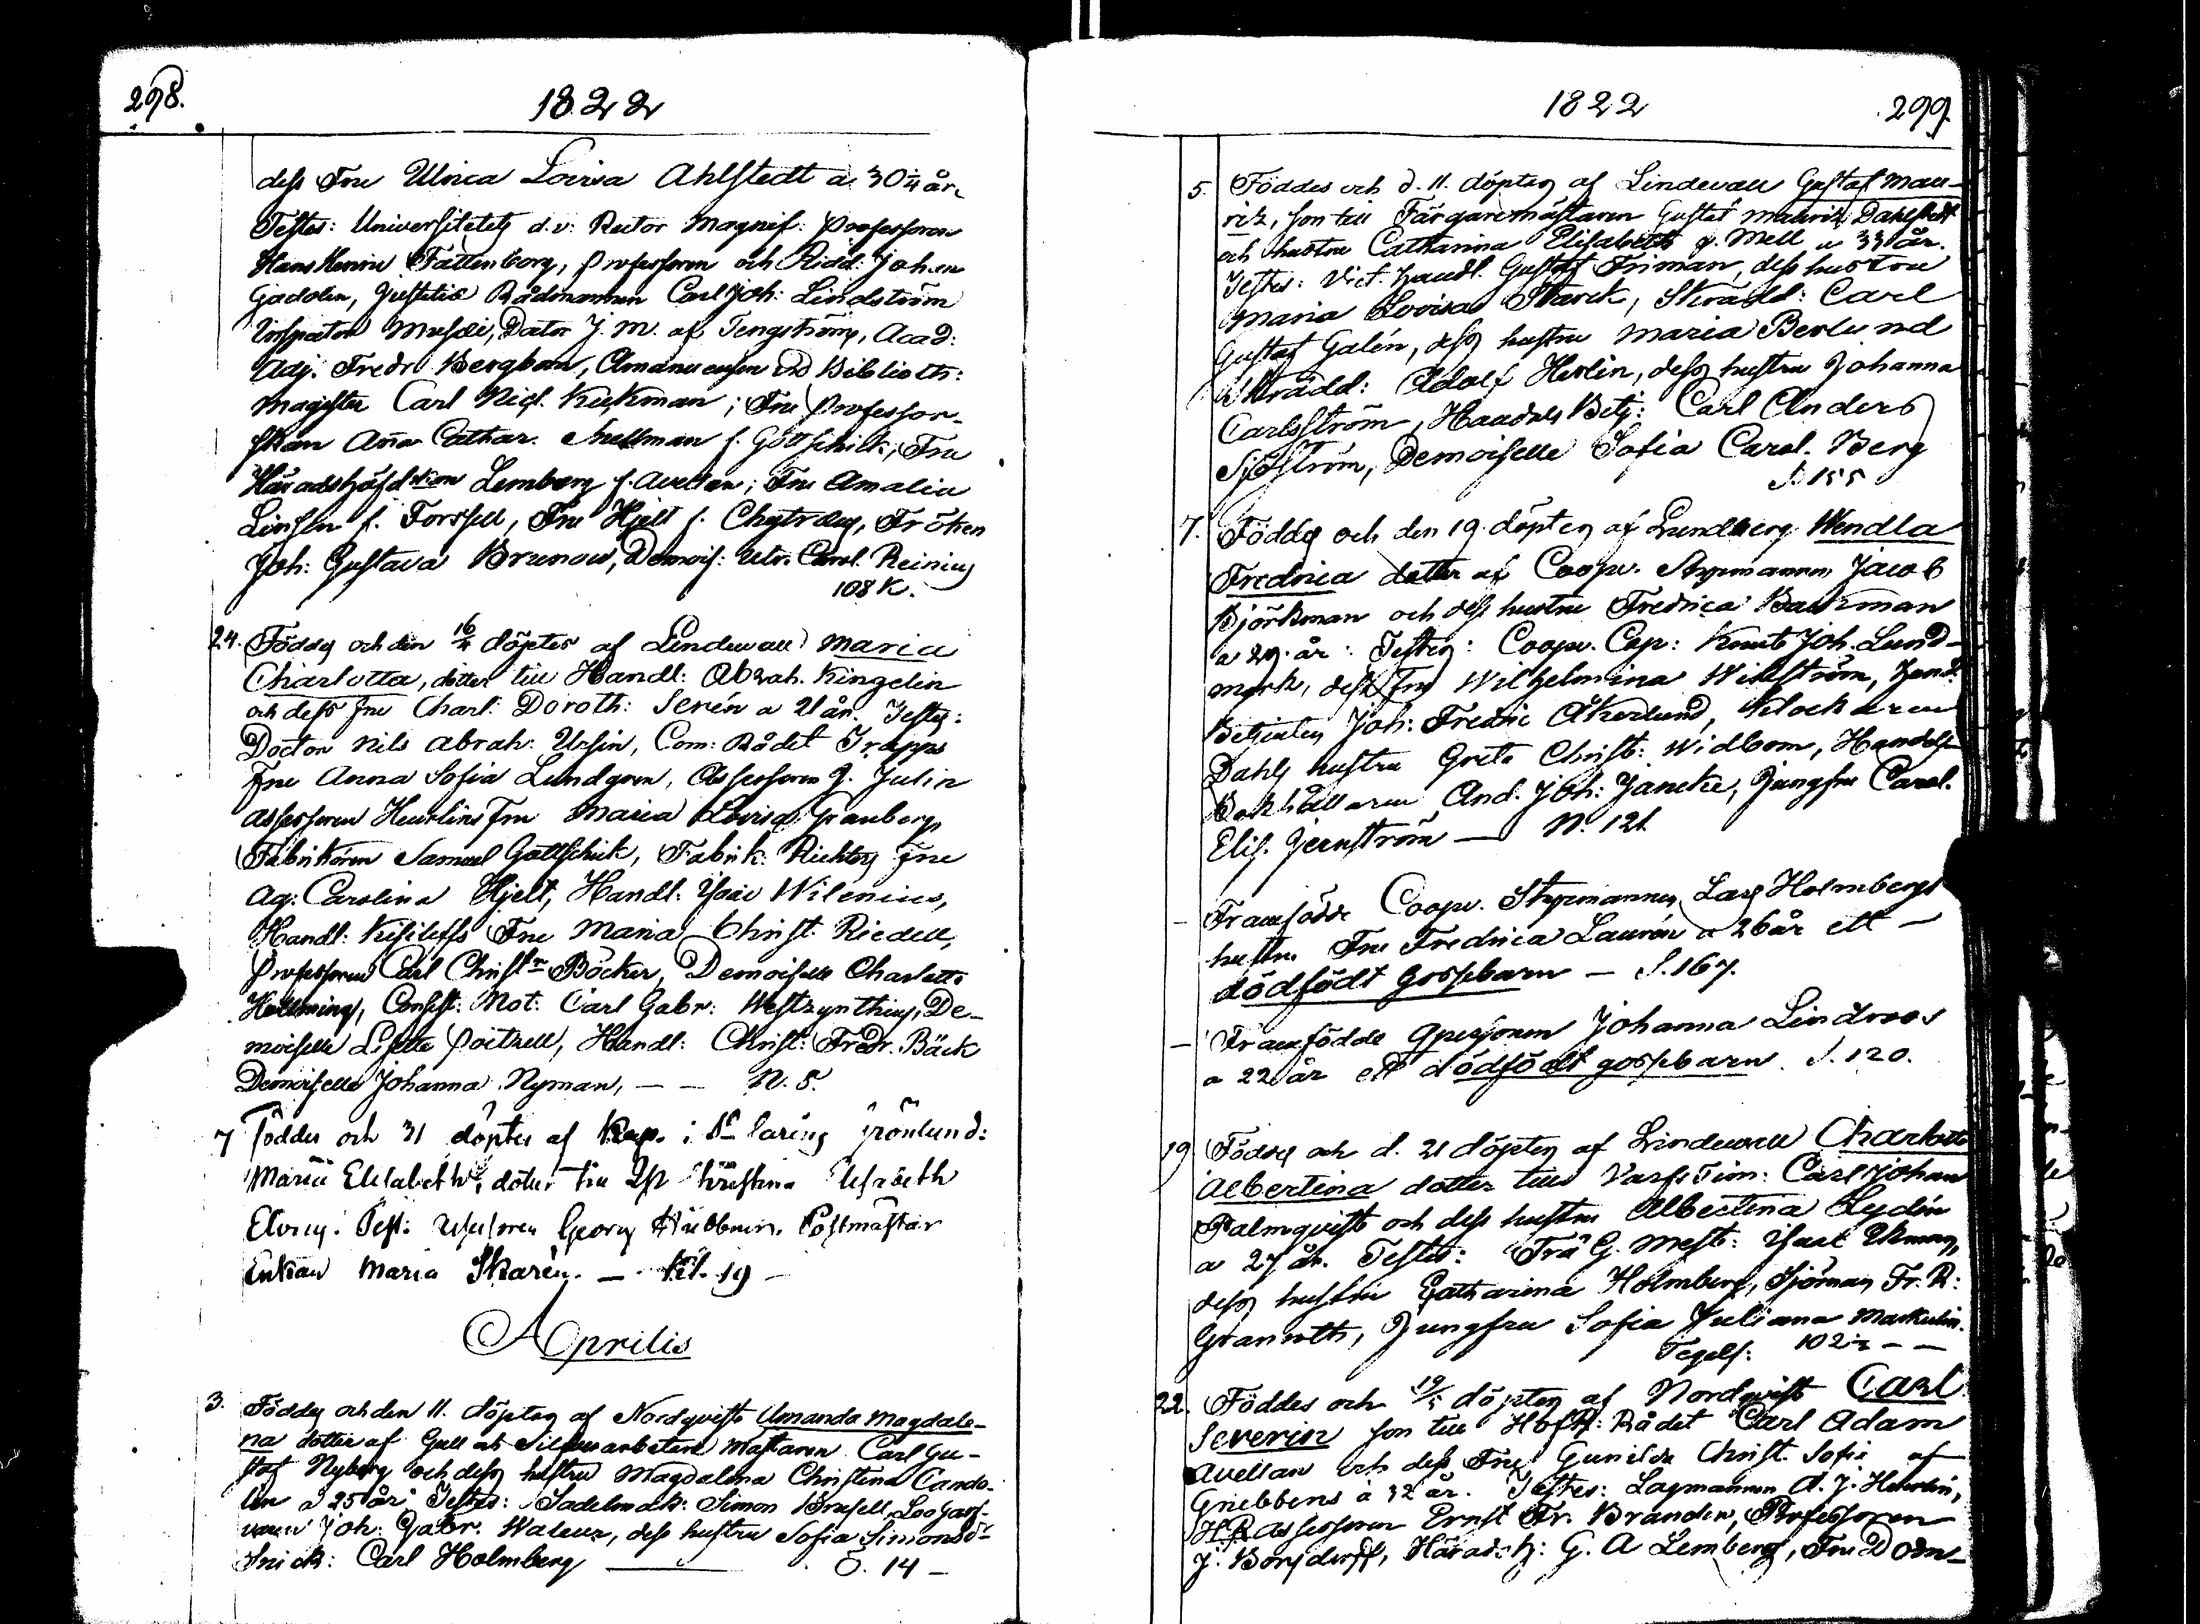 298.
1822
dess Fru Ulrica Lovisa Ahlstedt a 30 1/4 år.
Testes: Universitetets d.v. Rector Magnif: Professoren
Hans Henric Fattenborg, Professoren och Ridd: Johan
Gadolin, Justitiæ Rådmannen Carl Joh: Lindström
Inspector Musæi, Doctor J. M. af Tengström, Acad:
Adj: Fredr. Bergbom, Amanuensen vid Biblioth:
Magister Carl Nicl. Keckman; Fru Professor-
skan Anna Cathar. Snellman f. Gottschalk; Fru
Häradshöfdskan Lemberg f. Avellan; Fru Amalia
Linsén f. Forssell, Fru Hjelt f. Chytræus, Fröken
Joh: Gustava Brunow, Demois: Ulr. Carol. Reinius
108 K.
24. Föddes och den 16/4 döptes af Lindewall Maria
Charlotta, dotter till Handl: Abrah. Kingelin
och dess Fru Charl: Doroth: Serén a 21 år. Testes:
Doctor Nils Abrah: Ursin, Com: Rådet Trapps
Fru Anna Sofia Lundgren, Assessoren J. Julin
Assessoren Heurlins Fru Maria Lovisa Granberg
Fabrikören Samuel Gottschalk, Fabrik: Richters Fru
Ag: Carolina Hjelt, Handl: Isac Wilenius,
Handl: Kisileffs Fru Maria Christ. Riedell,
Professoren Carl Christn Böcker, Demoiselle Charlotta
Hellming, Consist: Not: Carl Gabr: Westzynthius, De-
moiselle Lisette Poitzell, Handl: Christ: Fredr. Bäck
Demoiselle Johanna Nyman, — — N. 5.
7 Föddes och 31 döptes af Kap. i St Karins Grönlund:
Maria Elisabeth, dotter till Qp Christina Elisabeth
Testes: Georg Postmästar
Enkan Maria Skarén. — Kl. 19 —
Aprilis
3. Föddes och den 11. döptes af Nordqvist Amanda Magdale-
na dotter af Guld och Silfverarbetare Mästaren Carl Gu-
staf Nyberg och dess hustru Magdalena Christina Cande-
lin a 25 år. Testes: Sadelmak: Simon Brusell, Logarf-
varen Joh: Gabr. Waleur, dess hustru Sofia Simonsdr
Snick: Carl Holmberg — Ö. 14 —
1822
299.
5. Föddes och d. 11. döptes af Lindewall Gustaf Mau-
ritz, son till Färgaremästaren Gustaf Mauritz Dahlstedt
och hustru Catharina Elisabeth f. Mell a 33 år.
Testes: Vict. handl. Gustaf Friman, dess hustru
Maria Lovisa Starck, Skrädd: Carl
Gustaf Galén, dess hustru Maria Berlund
Skrädd: Adolf Herlin, dess hustru Johanna
Carlström, Handels Betj: Carl Anders
Sjöström, Demoiselle Sofia Carol. Berg
S. 155
7. Föddes och den 19. döptes af Lundberg Wendla
Fredrica dotter af Coopv. Styrmannen Jacob
Björkman och dess hustru Fredrica Backman
a 29. år. Testes: Coopv. Cap: Knut Joh. Lund-
mark, dess Fru Wilhelmina Wikström, Handl.
Betjenten Joh: Fredric Åkerlund, Klockaren
Dahls hustru Greta Christ: Widbom, Handels
Bokhållaren And. Joh: Jancke, Jungfru Carol.
Elis. Jernström — N. 121
— Framfödde Coopv. Styrmannen Lars Holmbergs
hustru Fru Fredrica Laurén a 26 år ett —
dödfödt gossebarn — S. 167.
— Framfödde Qpersonen Johanna Lindroos
a 22 år ett dödfödt gossebarn. S. 120.
19 Föddes och d. 21 döptes af Lindewall Charlotta
Albertina dotter till Varfs Tim: Carl Johan
Palmqvist och dess hustru Albertina Lydén
a 27 år. Testes: Trä G. Mest: Isac Ekman,
dess hustru Catharina Holmberg, Sjöman Fr. R:
Granroth, Jungfru Sofia Juliana Markelin.
Tegels: 102 1/2 — —
22. Föddes och 19/5 döptes af Nordqvist Carl
Severin son till HofR: Rådet Carl Adam
Avellan och dess Fru Gunilda Christ. Sofia af
Griebbens a 32 år. Testes: Lagmannen A. J. Heurlin,
HR Assessoren Ernst Fr. Brander, Professoren
J. Bonsdorff, Härads h: G. A Lemberg, Fru Dom-